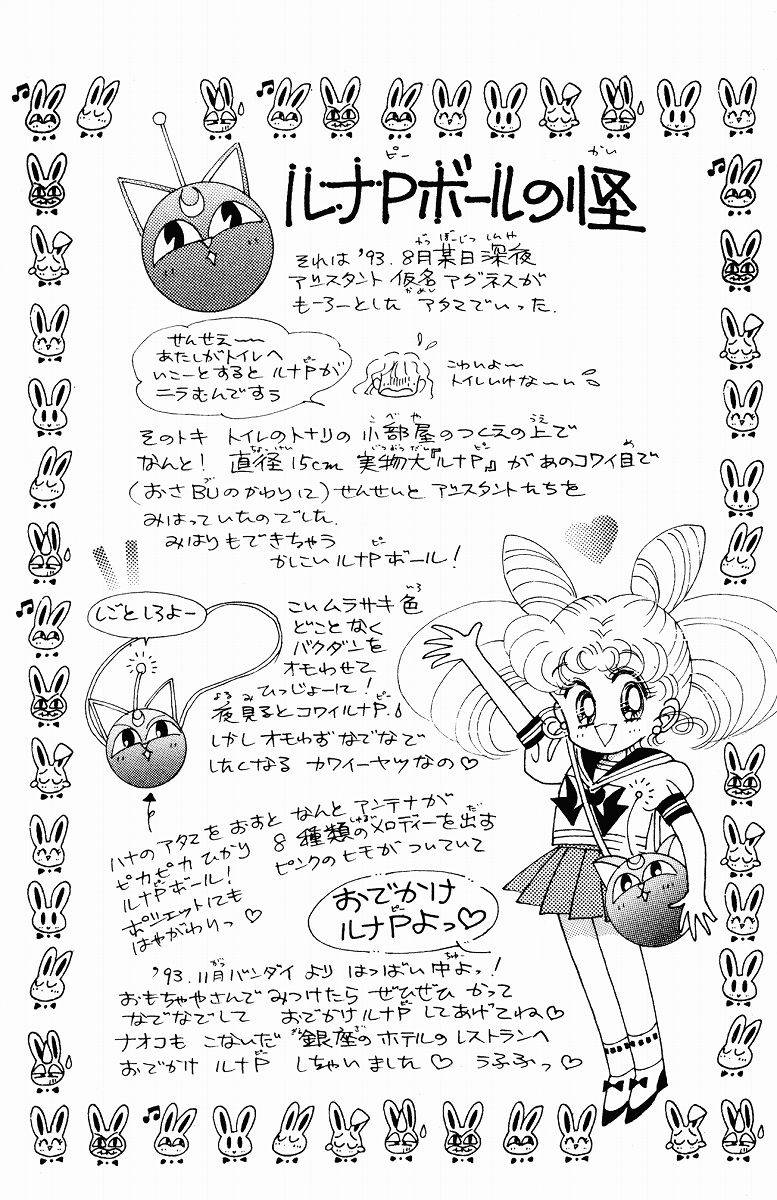 ルナPボールの怪
ピー
かい
それは '93. 8月某日深夜
がつぼうじつしんや
アシスタント 仮名 アグネスが
かめい
もーろーとした アタマでいった.
せんせえ〜〜
あたしがトイレへ
いこーとすると ルナPが
ニラむんですぅ
こわいよ〜
トイレいけな〜い
そのトキ トイレのトナリの 小部屋のつくえの上で
なんと! 直径15cm 実物大『ルナP』が あのコワイ目で
(おさBUのかわりに) せんせいと アシスタントたちを
みはっていたのでした.
みはりもできちゃう
かしこい ルナPボール!
しごとしろよー
こいムラサキ色
どことなく
バクダンを
オモわせて
ひっじょーに!
夜見るとコワイルナP.
しかし オモわず なでなで
したくなる カワイーヤツなの♡
ハナのアタマを おすと なんと アンテナが
ピカピカ ひかり 8種類のメロディーを出す
ルナPボール! ピンクのヒモが ついていて
ポシェットにも
はやがわりっ♡
おでかけ
ルナPよっ♡
'93. 11月バンダイ より はつばい中よっ!
おもちゃやさんで みつけたら ぜひぜひ かって
なでなでして おでかけルナP してあげてね♡
ナオコも こないだ 銀座の ホテルの レストランへ
おでかけ ルナP しちゃいました♡ うふふっ♡